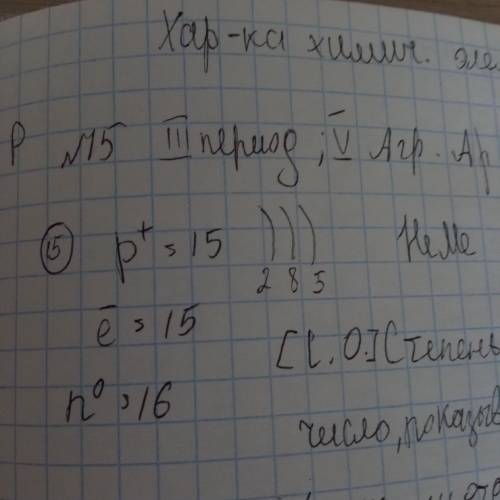 Хар-ка химич. эле
P №15 III период; V A гр. Ар
15 p⁺ = 15 ))) НеМе
2 8 5
ē = 15
[С.О.] Степень
n⁰ = 16
число, показыв